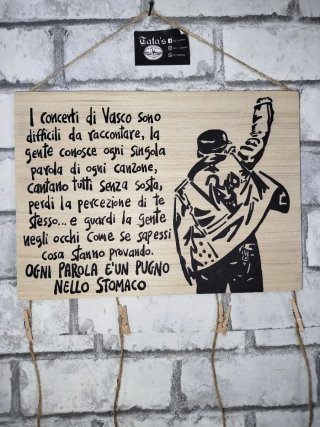 Tata's
I concerti di Vasco sono
difficili da raccontare, la
gente conosce ogni singola
parola di ogni canzone,
cantano tutti senza sosta,
perdi la percezione di te
stesso... e guardi la gente
negli occhi come se sapessi
cosa stanno provando.
OGNI PAROLA E'UN PUGNO
NELLO STOMACO